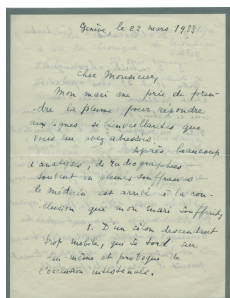 Genève, le 22 mars 1933
Cher Monsieur,
Mon mari me prie de pren-
dre la plume pour répondre
aux lignes si bienveillantes que
vous lui avez adressées.
Après beaucoup
d'analyses, de radiographies
souvent en pleines souffrances
le médecin est arrivé à la con-
clusion que mon mari souffrait,
1. D'un côlon descendant
trop mobile, qui se tord sur
lui-même et provoque de
l'occlusion intestinale.